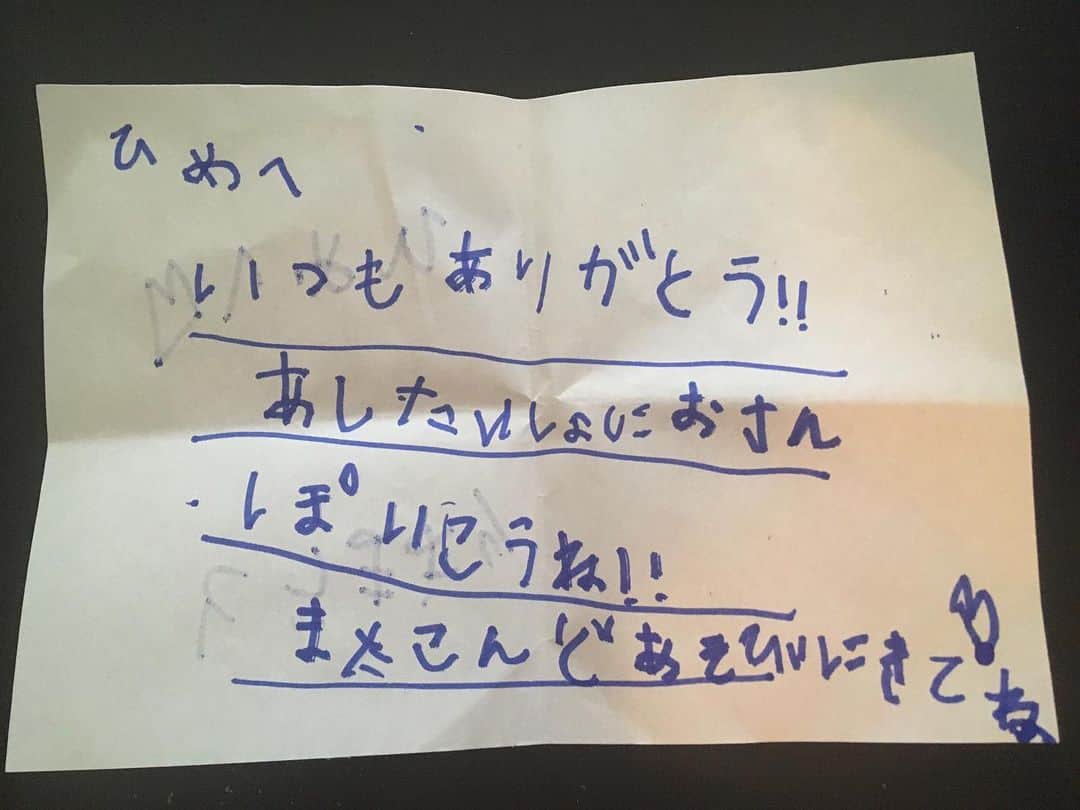 ひめへ
いつもありがとう!!
あしたいしょにおさん
ぽいこうね!!
またこんどあそびにきてね